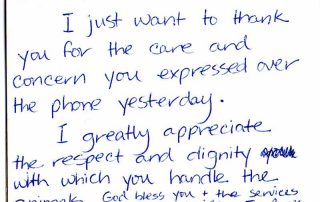 I just want to thank
you for the care and
concern you expressed over
the phone yesterday.
I greatly appreciate
the respect and dignity
with which you handle the
animals. God bless you + the services